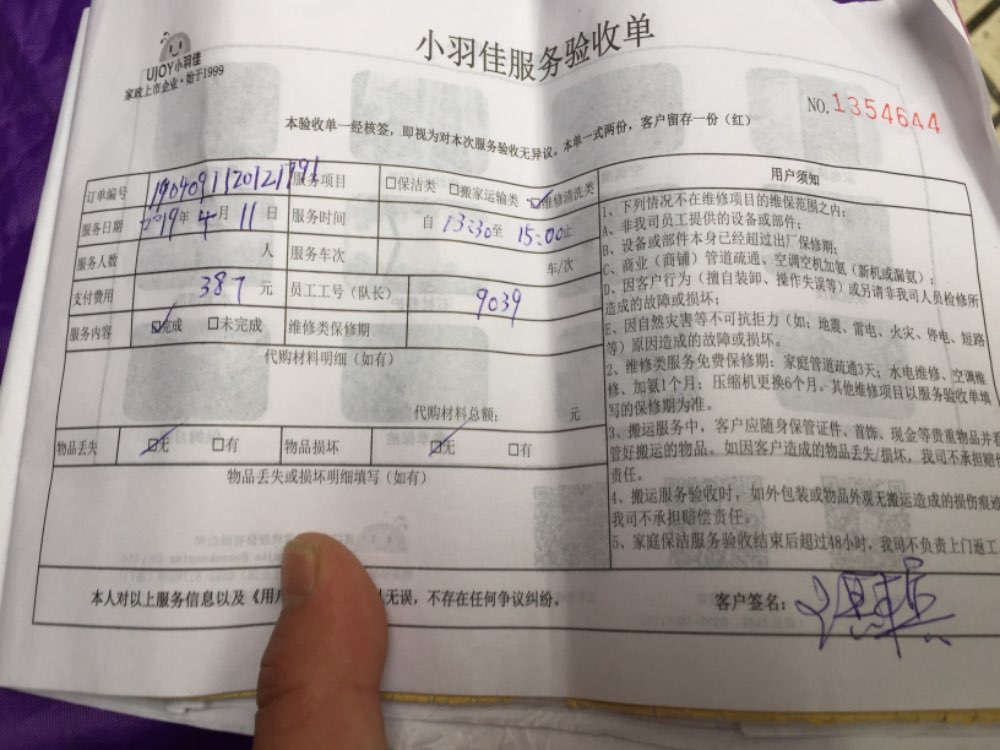 小羽佳服务验收单
UJOY小羽佳
家政上市企业·始于1999
NO.1354644
本验收单一经核签，即视为对本次服务验收无异议。本单一式两份，客户留存一份（红）
订单编号 1904091120121791 服务项目 □保洁类 □搬家运输类 ☑维修清洗类
服务日期 2019年 4月 11日 服务时间 自 13:30至 15:00止
服务人数 人 服务车次 车/次
支付费用 387 元 员工工号（队长） 9039
服务内容 ☑完成 □未完成 维修类保修期
代购材料明细（如有）
代购材料总额： 元
物品丢失 ☑无 □有 物品损坏 ☑无 □有
物品丢失或损坏明细填写（如有）
用户须知
1、下列情况不在维修项目的维保范围之内：
A、非我司员工提供的设备或部件；
B、设备或部件本身已经超过出厂保修期；
C、商业（商铺）管道疏通、空调空机加氨（新机或漏氨）；
D、因客户行为（擅自装卸、操作失误等）或另请非我司人员检修所
造成的故障或损坏；
E、因自然灾害等不可抗拒力（如：地震、雷电、火灾、停电、短路
等）原因造成的故障或损坏。
2、维修类服务免费保修期：家庭管道疏通3天；水电维修、空调维
修、加氨1个月；压缩机更换6个月。其他维修项目以服务验收单填
写的保修期为准。
3、搬运服务中，客户应随身保管证件、首饰、现金等贵重物品并有
管好搬运的物品。如因客户造成的物品丢失/损坏，我司不承担赔偿
责任。
4、搬运服务验收时，如外包装或物品外观无搬运造成的损伤痕迹
我司不承担赔偿责任。
5、家庭保洁服务验收结束后超过48小时，我司不负责上门返工
本人对以上服务信息以及《用户 无误，不存在任何争议纠纷。 客户签名：